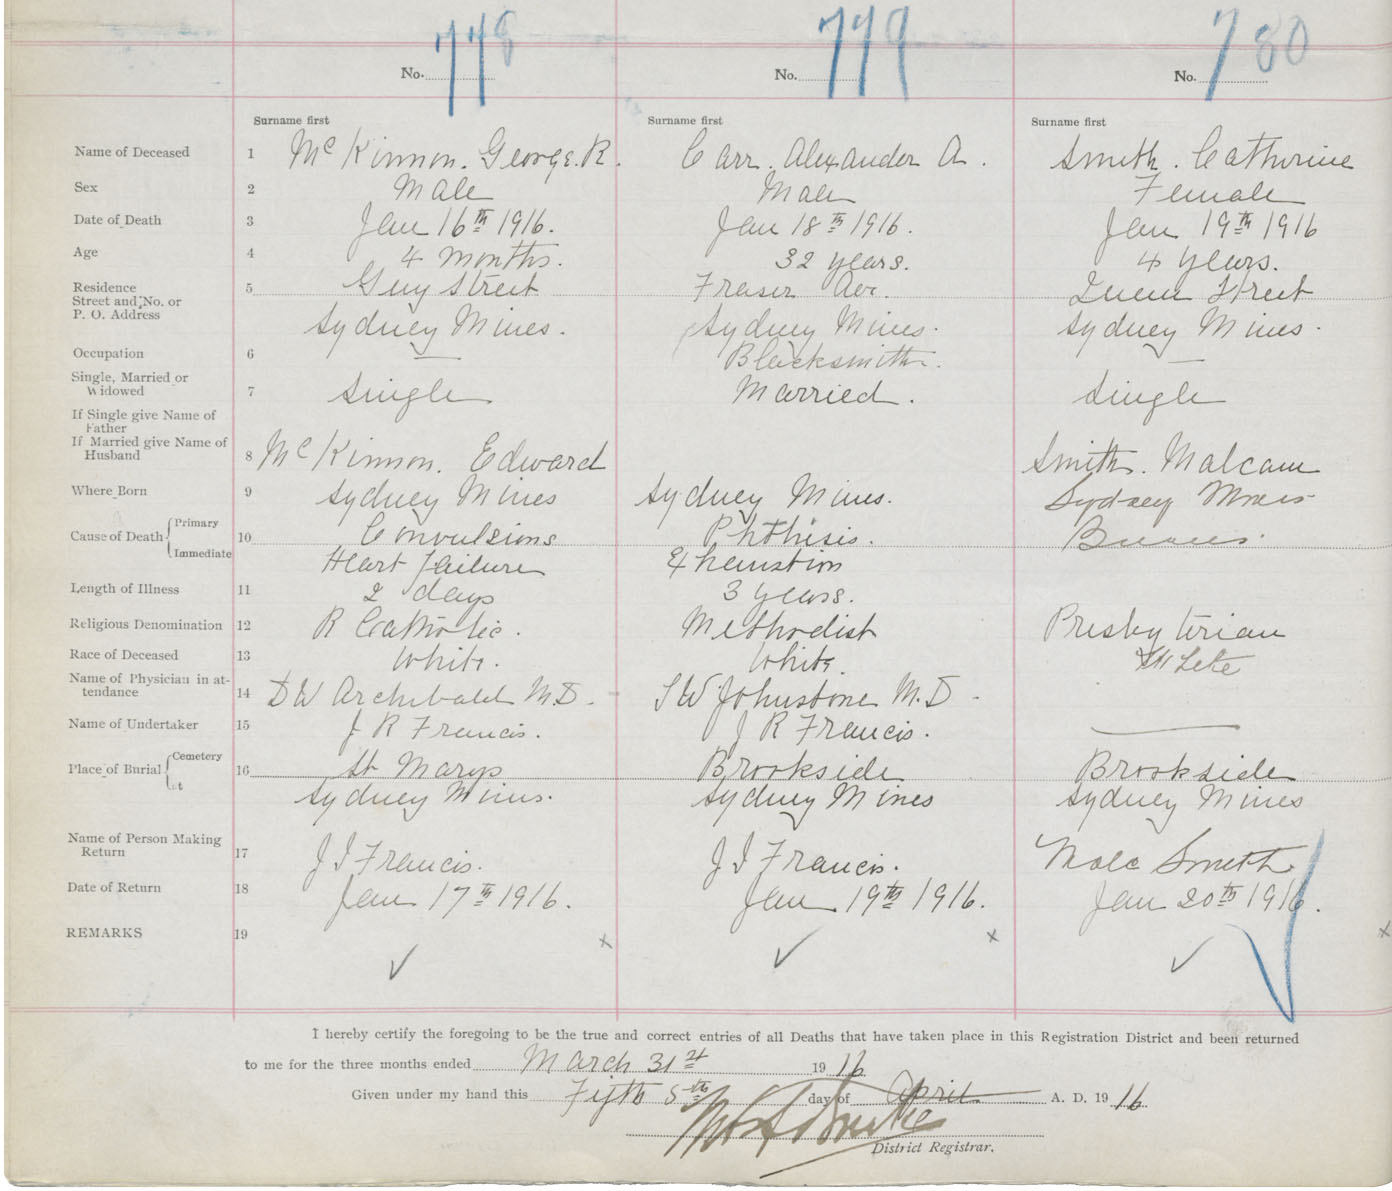 778 779 780
No. No. No.
Surname first Surname first Surname first
Name of Deceased 1 McKinnon. George. R. Carr. Alexander A. Smith. Catherine
Sex 2 Male Male Female
Date of Death 3 Jan 16th 1916. Jan 18th 1916. Jan 19th 1916
Age 4 4 months. 32 years. 4 years.
Residence 5 Guy Street Fraser Ave. Queen Street
Street and No. or
P. O. Address Sydney Mines. Sydney Mines. Sydney Mines.
Occupation 6 — Blacksmith. —
Single, Married or
Widowed 7 Single Married. Single
If Single give Name of
Father
If Married give Name of
Husband 8 McKinnon. Edward Smith. Malcam
Where Born 9 Sydney Mines Sydney Mines. Sydney Mines
Cause of Death { Primary 10 Convulsions Phthisis. Burns.
Immediate Heart failure Exhaustion
Length of Illness 11 2 days 3 years.
Religious Denomination 12 R Catholic. Methodist Presbyterian
Race of Deceased 13 White. White. White
Name of Physician in at-
tendance 14 D W Archibald M.D. Johnstone M.D. —
Name of Undertaker 15 J R Francis. J R Francis.
Place of Burial { Cemetery 16 St Marys Brookside Brookside
Sydney Mines. Sydney Mines Sydney Mines
Name of Person Making
Return 17 J J Francis. J J Francis. Malc Smith
Date of Return 18 Jan 17th 1916. Jan 19th 1916. Jan 20th 1916.
REMARKS 19 x x x
✓ ✓ ✓
I hereby certify the foregoing to be the true and correct entries of all Deaths that have taken place in this Registration District and been returned
to me for the three months ended March 31st 1916
Given under my hand this Fifth 5th day of April A. D. 1916
District Registrar.